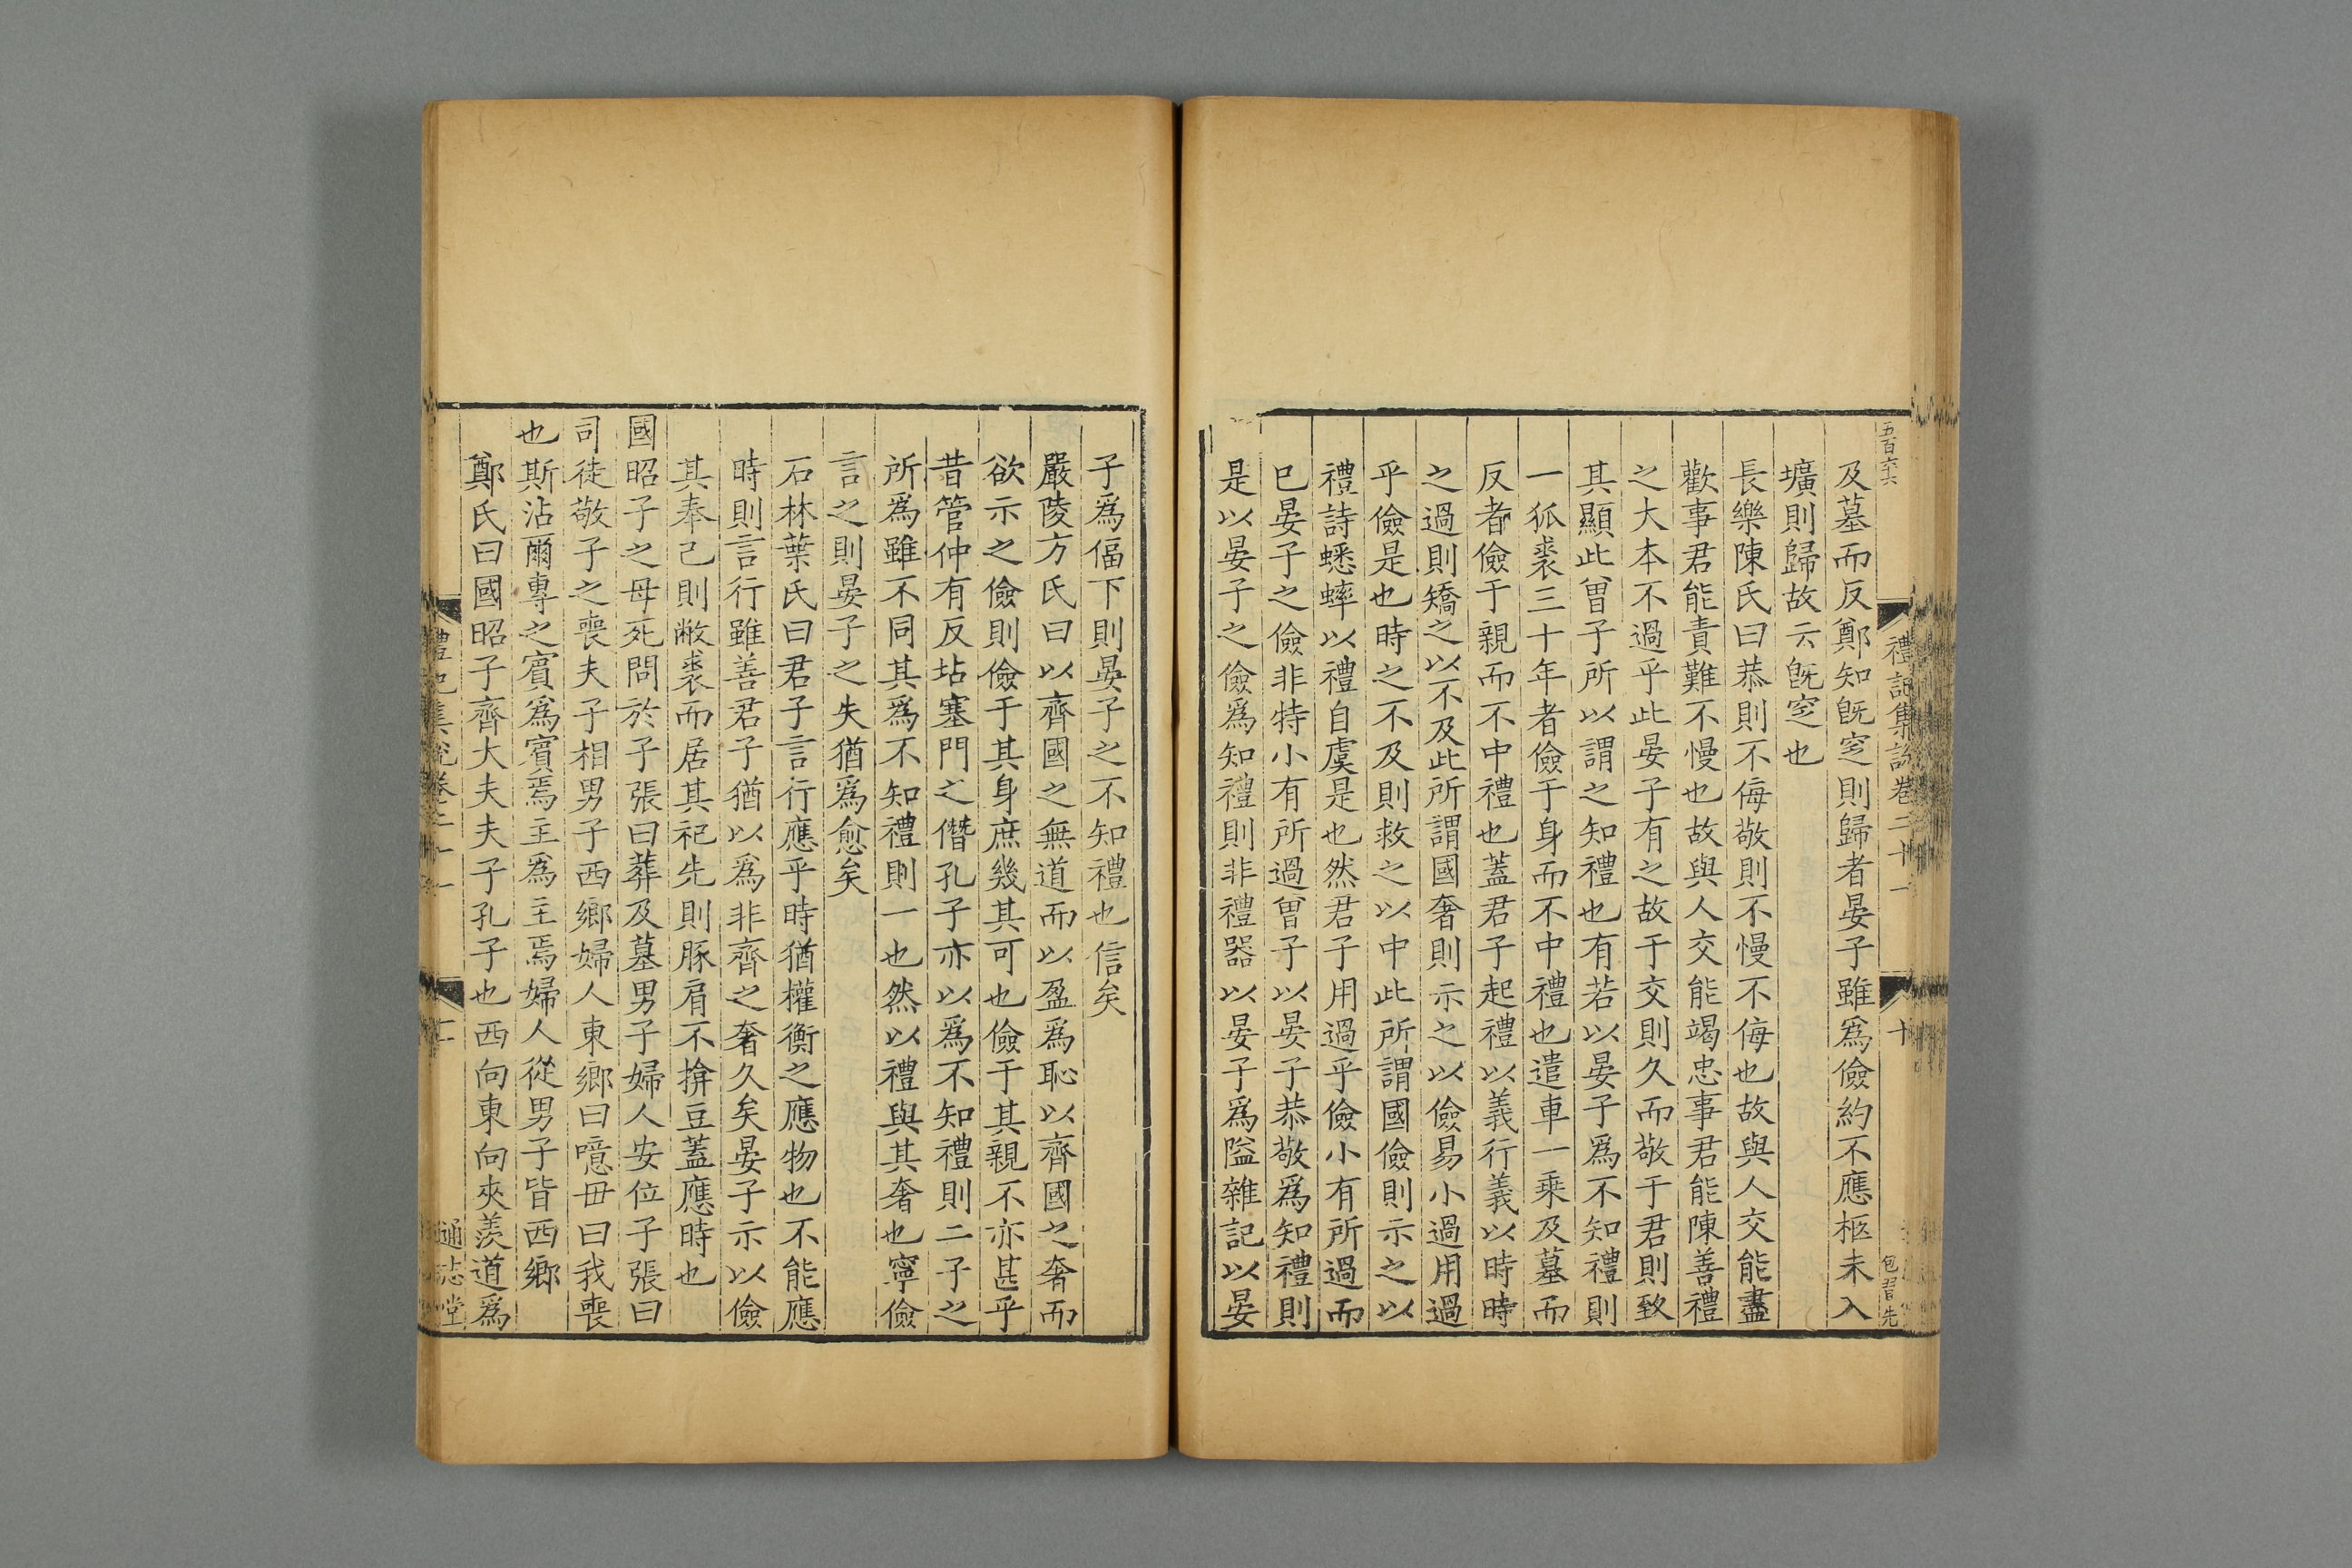 五百六六
禮記集説卷二十一
十
包習先
及墓而反鄭知旣窆則歸者晏子雖爲儉約不應柩未入
壙則歸故云旣窆也
長樂陳氏曰恭則不侮敬則不慢不侮也故與人交能盡
歡事君能責難不慢也故與人交能竭忠事君能陳善禮
之大本不過乎此晏子有之故于交則久而敬于君則致
其顯此曾子所以謂之知禮也有若以晏子爲不知禮則
一狐裘三十年者儉于身而不中禮也遣車一乘及墓而
反者儉于親而不中禮也蓋君子起禮以義行義以時時
之過則矯之以不及此所謂國奢則示之以儉易小過用過
乎儉是也時之不及則救之以中此所謂國儉則示之以
禮詩蟋蟀以禮自虞是也然君子用過乎儉小有所過而
巳晏子之儉非特小有所過曾子以晏子恭敬爲知禮則
是以晏子之儉爲知禮則非禮器以晏子爲隘雜記以晏
子爲偪下則晏子之不知禮也信矣
嚴陵方氏曰以齊國之無道而以盈爲恥以齊國之奢而
欲示之儉則儉于其身庶幾其可也儉于其親不亦甚乎
昔管仲有反坫塞門之僭孔子亦以爲不知禮則二子之
所爲雖不同其爲不知禮則一也然以禮與其奢也寧儉
言之則晏子之失猶爲愈矣
石林葉氏曰君子言行應乎時猶權衡之應物也不能應
時則言行雖善君子猶以爲非齊之奢久矣晏子示以儉
其奉己則敝裘而居其祀先則豚肩不揜豆蓋應時也
國昭子之母死問於子張曰葬及墓男子婦人安位子張曰
司徒敬子之喪夫子相男子西鄉婦人東鄉曰噫毋曰我喪
也斯沾爾專之賓爲賓焉主爲主焉婦人從男子皆西鄉
鄭氏曰國昭子齊大夫夫子孔子也西向東向夾羨道爲
禮記集説卷二十一
通志堂